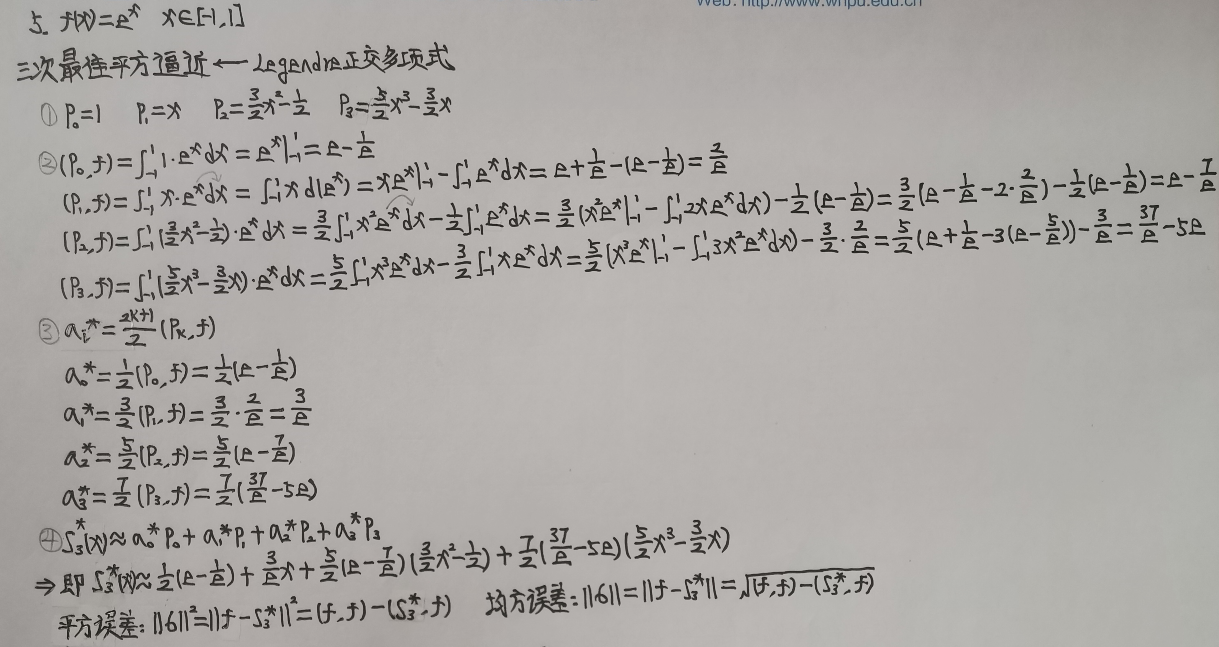 Web: http://www.whpu.edu.cn
5. f(x)=eˣ x∈[-1,1]
三次最佳平方逼近 ← Legendre正交多项式
① P₀=1 P₁=x P₂=3/2x²-1/2 P₃=5/2x³-3/2x
② (P₀,f)=∫₋₁¹1·eˣdx=eˣ|₋₁¹=e-1/e
(P₁,f)=∫₋₁¹x·eˣdx=∫₋₁¹xd(eˣ)=xeˣ|₋₁¹-∫₋₁¹eˣdx=e+1/e-(e-1/e)=2/e
(P₂,f)=∫₋₁¹(3/2x²-1/2)·eˣdx=3/2∫₋₁¹x²eˣdx-1/2∫₋₁¹eˣdx=3/2(x²eˣ|₋₁¹-∫₋₁¹2xeˣdx)-1/2(e-1/e)=3/2(e-1/e-2·2/e)-1/2(e-1/e)=e-7/e
(P₃,f)=∫₋₁¹(5/2x³-3/2x)·eˣdx=5/2∫₋₁¹x³eˣdx-3/2∫₋₁¹xeˣdx=5/2(x³eˣ|₋₁¹-∫₋₁¹3x²eˣdx)-3/2·2/e=5/2(e+1/e-3(e-5/e))-3/e=37/e-5e
③ aᵢ*=2k+1/2(Pₖ,f)
a₀*=1/2(P₀,f)=1/2(e-1/e)
a₁*=3/2(P₁,f)=3/2·2/e=3/e
a₂*=5/2(P₂,f)=5/2(e-7/e)
a₃*=7/2(P₃,f)=7/2(37/e-5e)
④ S₃*(x)≈a₀*P₀+a₁*P₁+a₂*P₂+a₃*P₃
⇒即 S₃*(x)≈1/2(e-1/e)+3/ex+5/2(e-7/e)(3/2x²-1/2)+7/2(37/e-5e)(5/2x³-3/2x)
平方误差:||6||²=||f-S₃*||²=(f,f)-(S₃*,f) 均方误差:||6||=||f-S₃*||=√(f,f)-(S₃*,f)